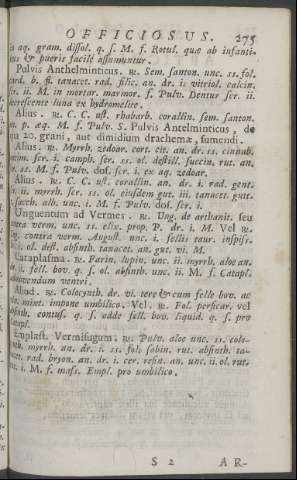 OFFICIOSUS. 275
in aq. gram. dissol. q. s. M. f. Rotul. quæ ab infanti-
bus & pueris facilè assumuntur.
Pulvis Anthelminticus. ℞. Sem. santon. unc. ss. fol.
card. b. fl. tanacet. rad. filic. an. dr. i. vitriol. calcin.
scr. ii. M. in mortar. marmor. f. Pulv. Dentur scr. ii.
decrescente luna ex hydromelite.
Alius. ℞. C. C. ust. rhabarb. corallin. sem. santon.
an. p. æq. M. f. Pulv. S. Pulvis Antelminticus, de
quo 20. grani, aut dimidium drachemæ, sumendi.
Alius. ℞. Myrrh. zedoar. corr. citr. an. dr. ss. cinnab.
scr. i. camph. scr. ss. ol. destill. succin. rut. an.
ss. M. f. Pulv. dos. scr. i. ex aq. zedoar.
Alius. ℞. C. C. ust. corallin. an. dr. i. rad. gent.
ii. myrrh. scr. ss. ol. ejusdem gut. iii. tanacet. gutt.
sacch. alb. unc. i. M. f. Pulv. dos. scr. i.
Unguentum ad Vermes. ℞. Ung. de arthanit. seu
contra verm. unc. ss. elix. prop. P. dr. i. M Vel ℞.
Ung. contra verm. August. unc. i. fellis taur. inspiss.
ol. dest. absinth. tanacet. an. gut. vi. M.
Cataplasma. ℞. Farin. lupin. unc. ii. myrrh. aloe an.
dr. ii. fell. bov. q. s. ol. absinth. unc. ii. M. f. Catapl.
admovendum ventri.
Aliud. ℞. Colocynth. dr. vi. tere & cum felle bov. ac
mixt. impone umbilico. Vel. ℞. Fol. persicar. vel
absinth. contus. q. s. adde fell. bov. liquid. q. s. pro
Catapl.
Emplast. Vermifugum. ℞. Pulv. aloe unc. ss. colo-
cynth. myrrh. an. dr. i. ss. fol. sabin. rut. absinth. ta-
nacet. rad. bryon. an. dr. i. cer. resin. an. unc. ii. ol. rut.
unc. i. M. f. mass. Empl. pro umbilico.
S 2 AR-